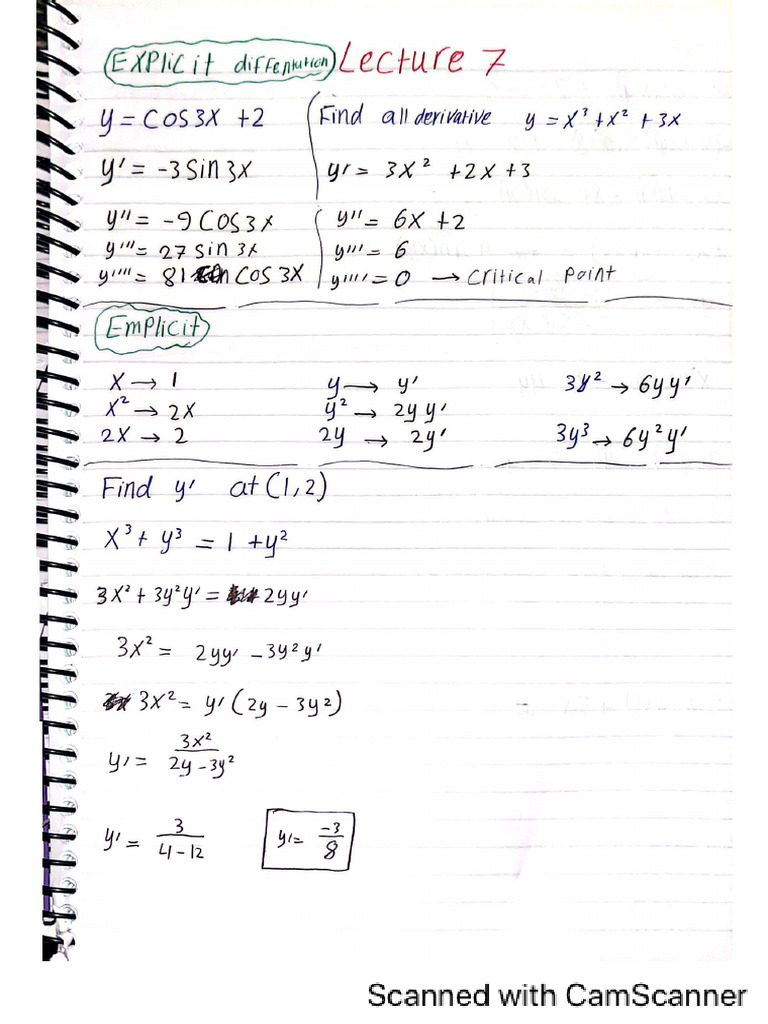 EXPlicit diffentution Lecture 7
y = COS3X + 2
y' = -3 Sin 3X
y'' = -9 COS3X
y''' = 27 sin 3X
y'''' = 81 COS 3X
Find all derivative y = X³ + X² + 3X
y' = 3X² + 2X + 3
y'' = 6X + 2
y''' = 6
y'''' = 0 → Critical Point
Emplicit
X → 1 y → y' 3y² → 6yy'
X² → 2X y² → 2y y' 3y³ → 6y²y'
2X → 2 2y → 2y'
Find y' at (1,2)
X³ + y³ = 1 + y²
3X² + 3y²y' = 2yy'
3X² = 2yy' - 3y²y'
3X² = y' (2y - 3y²)
y' = 3X² / 2y - 3y²
y' = 3 / 4-12 y' = -3 / 8
Scanned with CamScanner